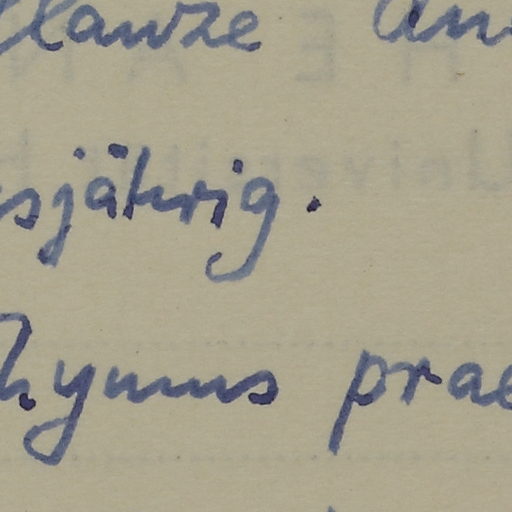 lanze an
sjährig.
hymus prae